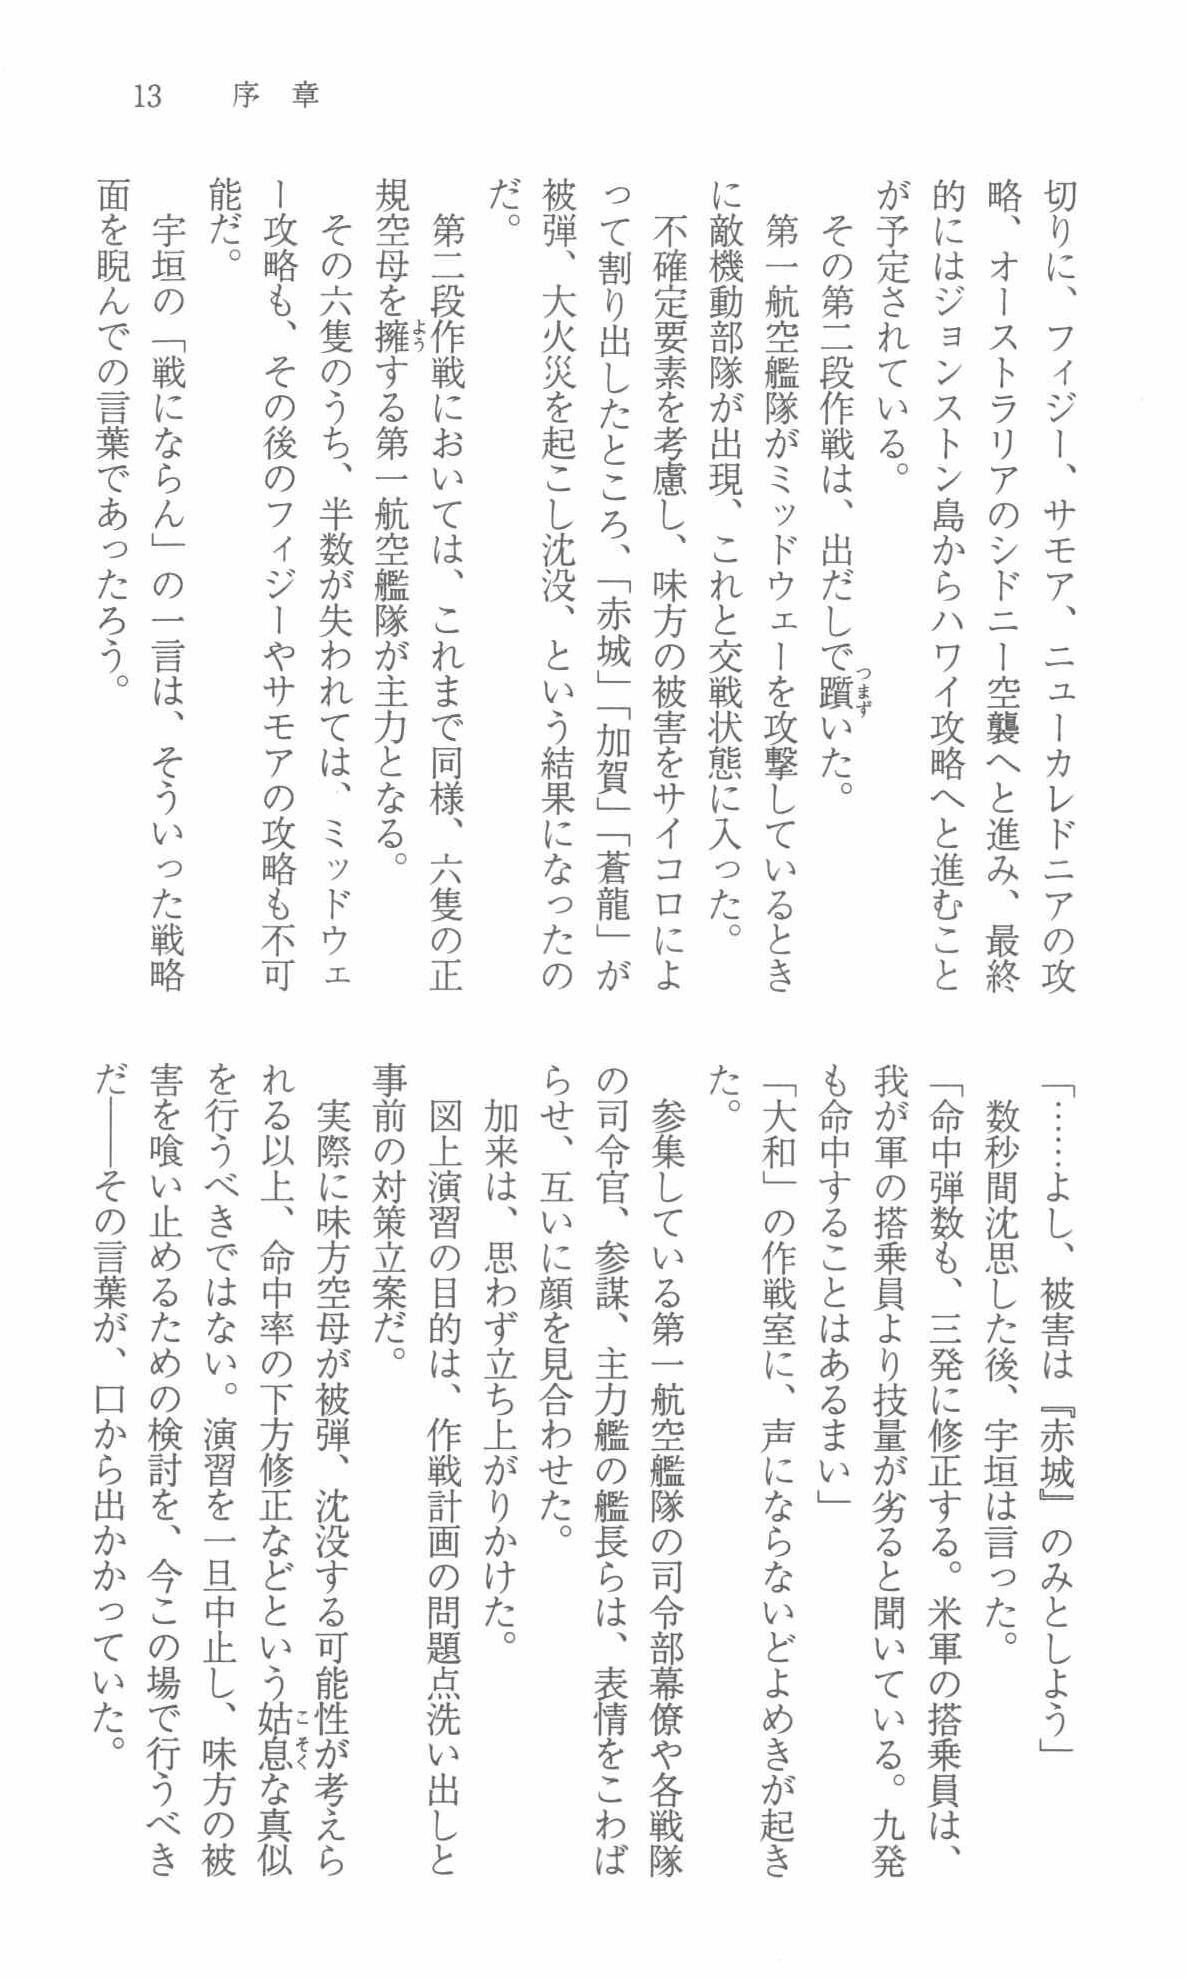 13　序　章
切りに、フィジー、サモア、ニューカレドニアの攻
略、オーストラリアのシドニー空襲へと進み、最終
的にはジョンストン島からハワイ攻略へと進むこと
が予定されている。
　その第二段作戦は、出だしで躓いた。
つまず
　第一航空艦隊がミッドウェーを攻撃しているとき
に敵機動部隊が出現、これと交戦状態に入った。
　不確定要素を考慮し、味方の被害をサイコロによ
って割り出したところ、「赤城」「加賀」「蒼龍」が
被弾、大火災を起こし沈没、という結果になったの
だ。
　第二段作戦においては、これまで同様、六隻の正
規空母を擁する第一航空艦隊が主力となる。
よう
　その六隻のうち、半数が失われては、ミッドウェ
ー攻略も、その後のフィジーやサモアの攻略も不可
能だ。
　宇垣の「戦にならん」の一言は、そういった戦略
面を睨んでの言葉であったろう。
「……よし、被害は『赤城』のみとしよう」
　数秒間沈思した後、宇垣は言った。
「命中弾数も、三発に修正する。米軍の搭乗員は、
我が軍の搭乗員より技量が劣ると聞いている。九発
も命中することはあるまい」
「大和」の作戦室に、声にならないどよめきが起き
た。
　参集している第一航空艦隊の司令部幕僚や各戦隊
の司令官、参謀、主力艦の艦長らは、表情をこわば
らせ、互いに顔を見合わせた。
　加来は、思わず立ち上がりかけた。
　図上演習の目的は、作戦計画の問題点洗い出しと
事前の対策立案だ。
　実際に味方空母が被弾、沈没する可能性が考えら
れる以上、命中率の下方修正などという姑息な真似
こそく
を行うべきではない。演習を一旦中止し、味方の被
害を喰い止めるための検討を、今この場で行うべき
だ――その言葉が、口から出かかっていた。